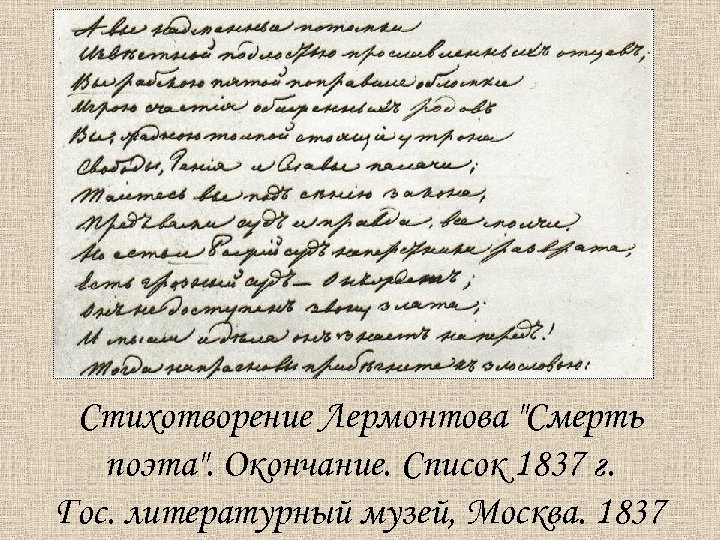 А вы надменные потомки
Извѣстной подлостью прославленныхъ отцевъ;
Вы рабскою пятой поправшие обломки
Игрою счастія обиженныхъ родовъ
Вы, жадною толпой стоящія у трона
Свободы, Генія и Славы палачи;
Таитесь вы подъ сѣнію закона,
Предъ вами судъ и правда, все молчи.
Но есть и Божій судъ наперсники разврата,
Есть грозный судъ — Онъ ждетъ;
Онъ не доступенъ звону злата;
И мысли и дѣла онъ знаетъ напередъ!
Тогда напрасно вы прибѣгнете къ злословью:
Стихотворение Лермонтова "Смерть
поэта". Окончание. Список 1837 г.
Гос. литературный музей, Москва. 1837